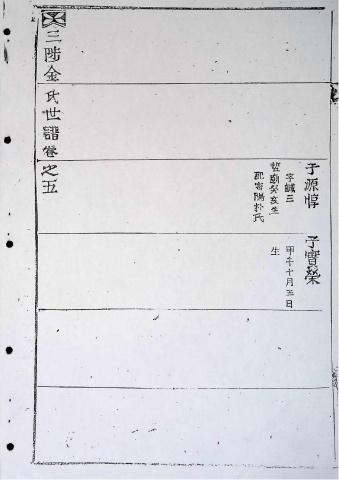 子源惇
字誠三
哲廟癸亥生
配密陽朴氏
子寶榮
甲午十月五日
生
三陟金氏世譜卷之五